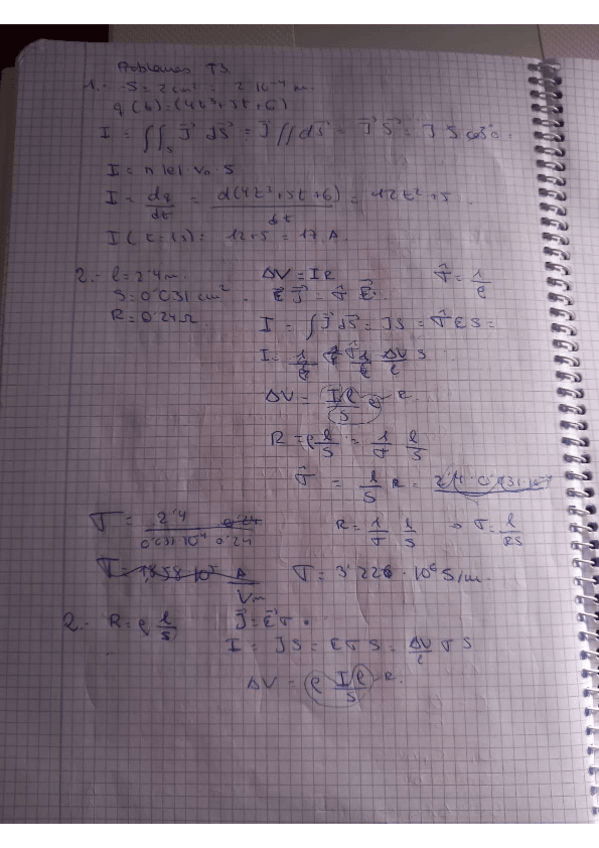 Problemas T3.
1.- S = 2 cm² = 2·10⁻⁴ m.
q(t) = (4t³+5t+6)
I = ∬_S J⃗ dS⃗ = J⃗ // dS⃗ = J⃗ S⃗ = J S cos 0.
I = n |e| · v₀ · S
I = dq/dt = d(4t³+5t+6)/dt = 12t²+5.
I(t=1s) = 12+5 = 17 A.
2.- l = 2'4 m. ΔV = IR σ = 1/ρ
S = 0'031 cm². J⃗ = σ E⃗.
R = 0'24 Ω. I = ∫ J⃗ dS⃗ = JS = σES =
I = ΔV/l S
ΔV = Il/S ρ R.
R = ρ l/S = 1/σ l/S
σ = l/S R =
σ = 2'4 / 0'031·10⁻⁴ 0'24 R = 1/σ l/S → σ = l/RS
σ = 3'226 · 10⁶ S/m.
2.- R = ρ l/S J⃗ = E⃗σ.
I = JS = EσS = ΔV/l σ S
ΔV = ρ Il/S R.